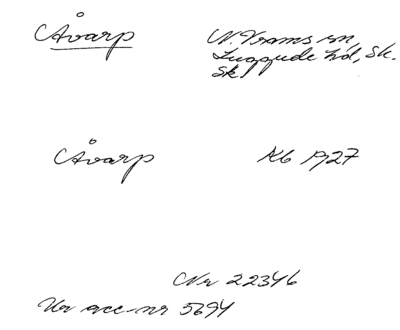 Åvarp N. Vrams sn,
Luggude hd, Sk.
Sk
Åvarp Kb 1927
Nr 22346
Ur acc-nr 5694